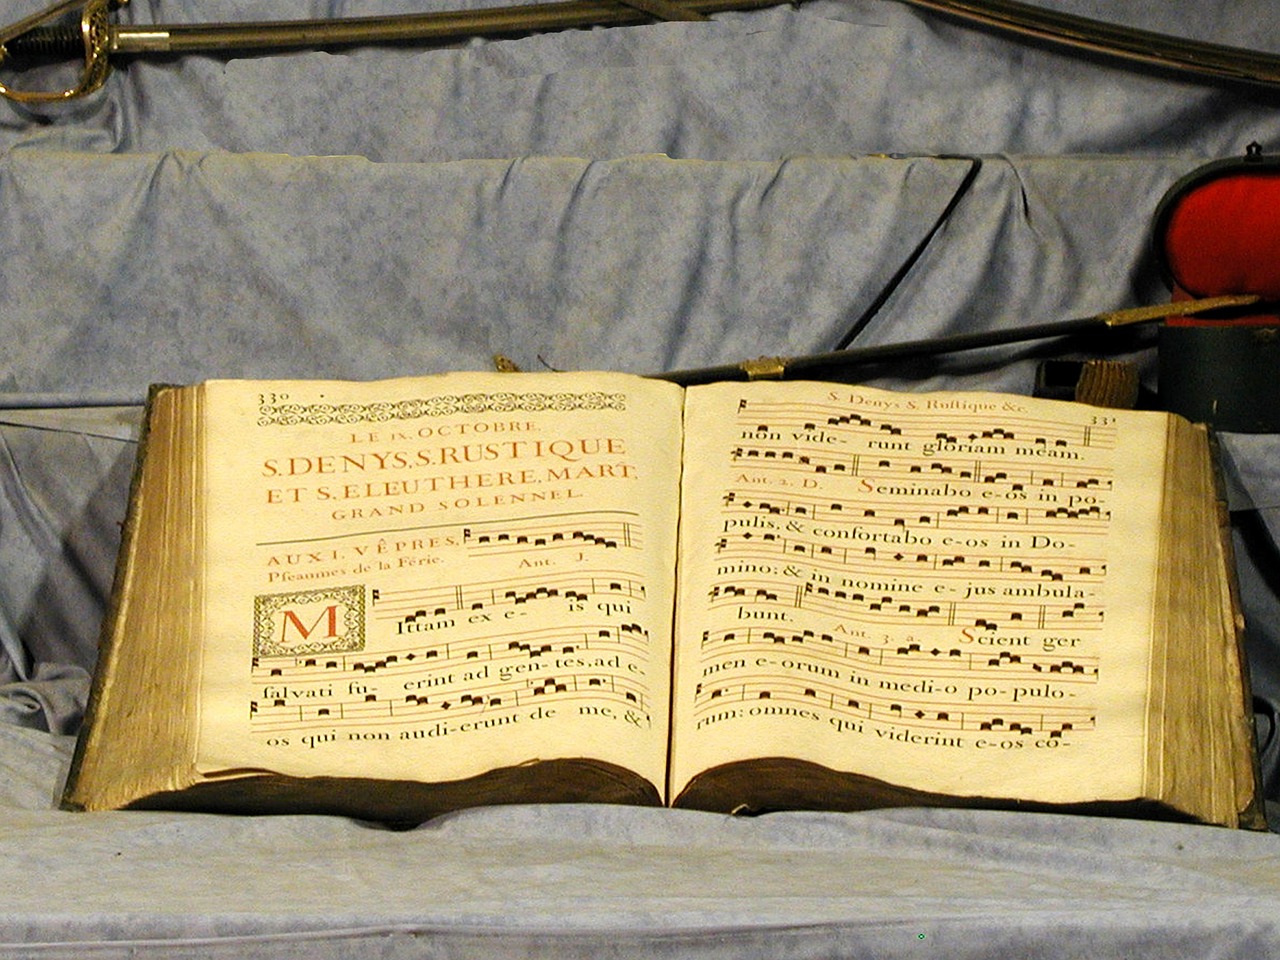 330
LE IX. OCTOBRE,
S. DENYS, S. RUSTIQUE
ET S. ELEUTHERE, MART,
GRAND SOLENNEL.
AUX I. VÊPRES,
Pſeaumes de la Férie. Ant. J.
MIttam ex e- is qui
ſalvati fu- erint ad gen- tes, ad e-
os qui non audi-erunt de me, &
S. Denys S. Ruſtique &c. 331
non vide- runt gloriam meam.
Ant. 2. D. Seminabo e-os in po-
pulis, & confortabo e-os in Do-
mino: & in nomine e- jus ambula-
bunt. Ant. 3. a. Scient ger
men e-orum in medi-o po-pulo-
rum: omnes qui viderint e-os co-